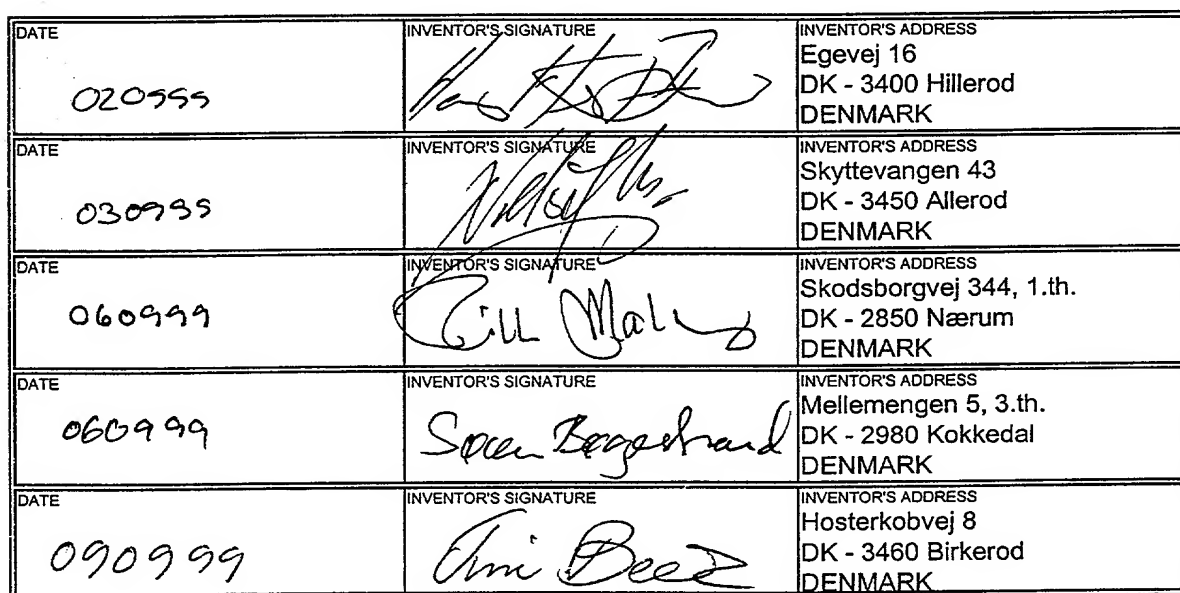 DATE
INVENTOR'S SIGNATURE
INVENTOR'S ADDRESS
020999
Egevej 16
DK - 3400 Hillerod
DENMARK
DATE
INVENTOR'S SIGNATURE
INVENTOR'S ADDRESS
030999
Skyttevangen 43
DK - 3450 Allerod
DENMARK
DATE
INVENTOR'S SIGNATURE
INVENTOR'S ADDRESS
060999
Skodsborgvej 344, 1.th.
DK - 2850 Nærum
DENMARK
DATE
INVENTOR'S SIGNATURE
INVENTOR'S ADDRESS
060999
Søren
Mellemengen 5, 3.th.
DK - 2980 Kokkedal
DENMARK
DATE
INVENTOR'S SIGNATURE
INVENTOR'S ADDRESS
090999
Hosterkobvej 8
DK - 3460 Birkerod
DENMARK